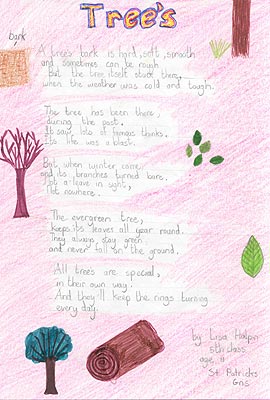 Tree's
Bark
A tree's bark is hard, soft, smooth
and sometimes can be rough
But the tree itself stuck there,
when the weather was cold and tough.
The tree has been there,
during the past.
It say lots of famous thinks.
Its life was a blast.
But when winter came,
and its branches turned bare.
Not a leave in sight,
Not nowhere.
The evergreen tree,
keeps it's leaves all year round.
They always stay green
and never fall on the ground.
All trees are special,
in their own way.
And they'll keep the rings turning
every day.
by Lisa Halpin
5th class
age 11
St Patricks
Gns